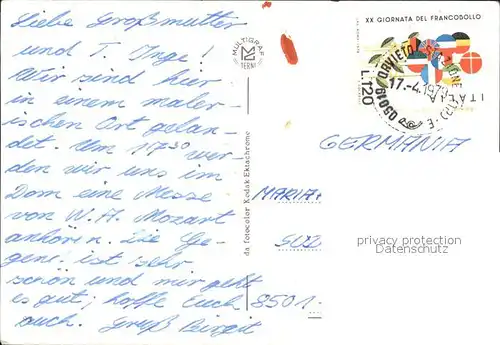 Liebe Großmutter
und T. Inge!
Wir sind hier
in einem maler-
ischen Ort gelan-
det. Um 1730 wer-
den wir uns im
Dom eine Messe
von W. A. Mozart
anhören. Die Ge-
gend ist sehr
schön und mir geht
es gut, hoffe Euch
auch. Gruß Birgit
MULTIGRAF
TERNI
da fotocolor Kodak Ektachrome
XX GIORNATA DEL FRANCOBOLLO
ITALIA
L.120
05019 ORVIETO
17.-4.197
GERMANIA
MARIA
SÜD
8501
protected by copyright
Datenschutz